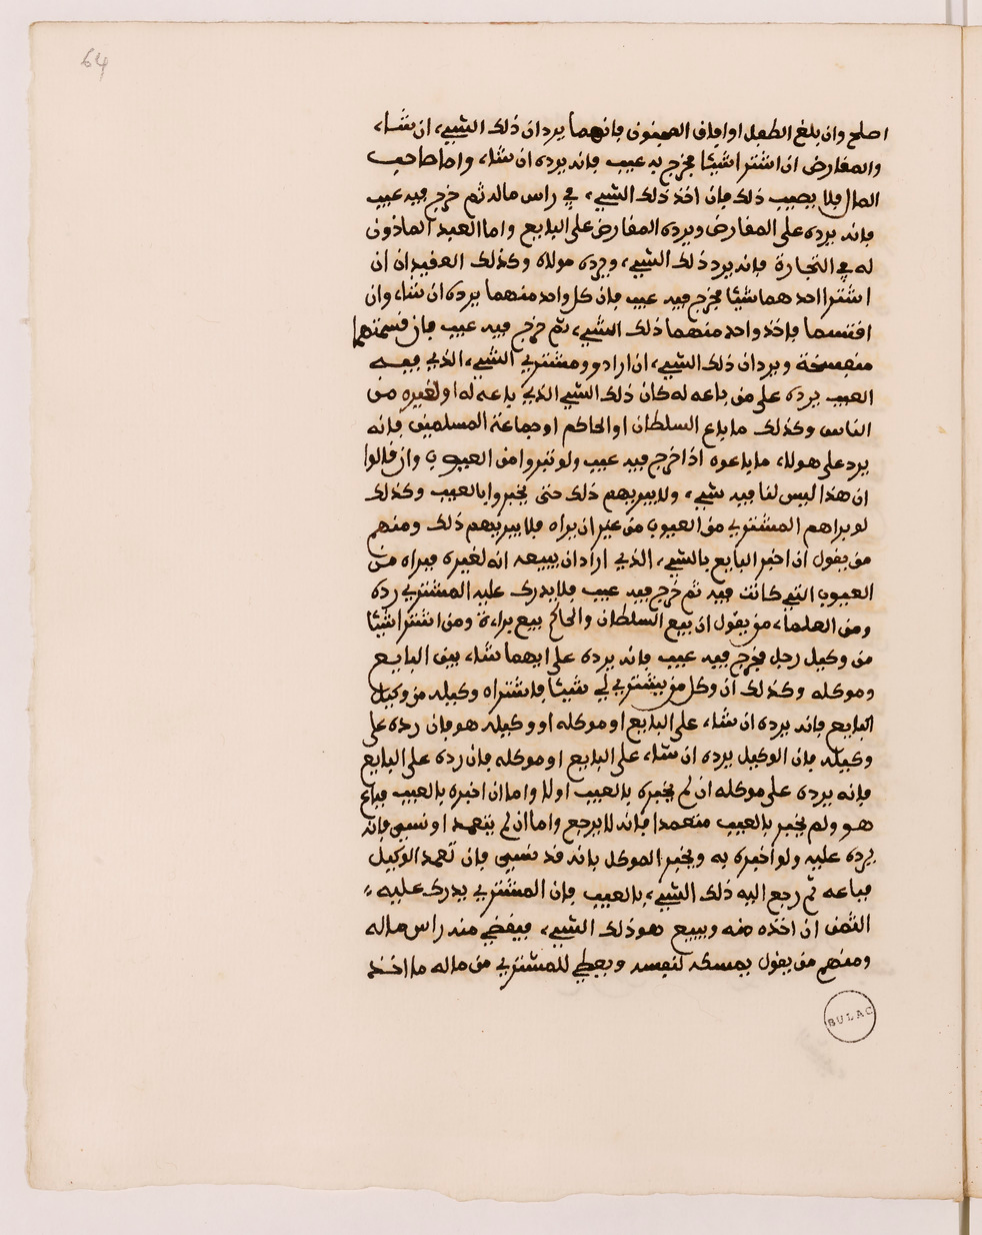 64
اصلح وان بلغ الطفل او افاق المجنون فانهما يردان ذلك الشيء ان شاء
والمقارض ان اشترا شيئا فخرج به عيب فانه يرده ان شاء واما صاحب
المال فلا يصيب ذلك فان اخذ ذلك الشيء في راس ماله ثم خرج فيه عيب
فانه يرده على المقارض ويرده المقارض على البايع واما العبد الماذون
له في التجارة فانه يرد ذلك الشيء ويرده مولاه وكذلك العقيدان ان
اشترا احدهما شيئا فخرج فيه عيب فان كل واحد منهما يرده ان شاء وان
اقتسما فاخذ واحد منهما ذلك الشيء ثم خرج فيه عيب فان قسمتهما
منفسخة ويردان ذلك الشيء ان ارادو ومشتري الشيء الذي فيه
العيب يرده على من باعه له كان ذلك الشيء الذي باعه له او لغيره من
الناس وكذلك ما باع السلطان او الحاكم او جماعة المسلمين فانه
يرد على هولاء ما باعوه اذا خرج فيه عيب ولو تبروا من العيوب وان قالوا
ان هذا ليس لنا فيه شيء ولا يبريهم ذلك حتى يخبروا بالعيب وكذلك
لو براهم المشتري من العيوب من غير ان يراه فلا يبريهم ذلك ومنهم
من يقول ان اخبر البايع بالشيء الذي اراد ان يبيعه انه لغيره فبراه من
العيوب التي كانت فيه ثم خرج فيه عيب فلا يدرك عليه المشتري رده
ومن العلماء من يقول ان بيع السلطان والحاكم بيع براءة ومن اشترا شيئا
من وكيل رجل فخرج فيه عيب فانه يرده على ايهما شاء بين البايع
وموكله وكذلك ان وكل من يشتري لي شيئا فاشتراه وكيله من وكيل
البايع فانه يرده ان شاء على البايع او موكله او وكيله هو فان رده على
وكيله فان الوكيل يرده ان شاء على البايع او موكله فان رده على البايع
فانه يرده على موكله ان لم يخبره بالعيب اولا واما ان اخبره بالعيب فباع
هو ولم يخبر بالعيب متعمدا فانه لا يرجع واما ان لم يتعمد او نسي فانه
يرده عليه ولو اخبره به ويخبر الموكل بانه قد نسيى فان تعمد الوكيل
فباعه ثم رجع اليه ذلك الشيء بالعيب فان المشتري يدرك عليه
الثمن ان اخذه منه ويبيع هو ذلك الشيء فيقضي منه راس ماله
ومنهم من يقول يمسكه لنفسه ويعطي للمشتري من ماله ما اخذ
BULAC